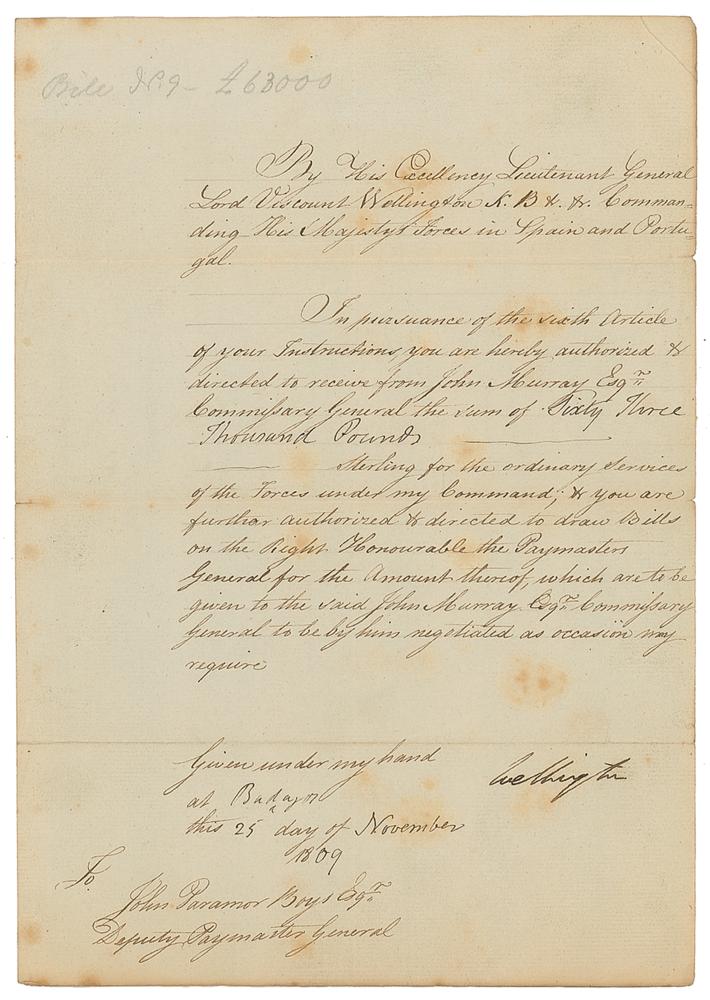 Bill No. 9 - £63000
By His Excellency Lieutenant General
Lord Viscount Wellington K. B &. &. Comman=
ding His Majesty's Forces in Spain and Portu=
gal.
In pursuance of the sixth Article
of your Instructions you are hereby authorized &
directed to receive from John Murray Esqr.
Commissary General the sum of Sixty Three
Thousand Pounds
Sterling for the ordinary Services
of the Forces under my Command; & you are
further authorized & directed to draw Bills
on the Right Honourable the Paymasters
General for the Amount thereof, which are to be
given to the said John Murray Esqr. Commissary
General to be by him negotiated as occasion may
require
Given under my hand
at Badajoz
Wellington
this 25 day of November
1809
To
John Paramor Boys Esqr.
Deputy Paymaster General